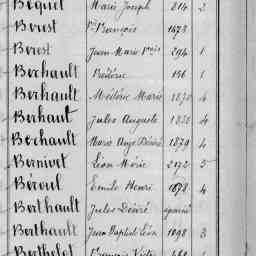 Béquet Marie Joseph 214 2
Berest François 1473
Berest Jean Marie 294 1
Berhault Frédéric 156 1
Berhault Médéric Marie 1870 4
Berhaut Jules Auguste 1830 4
Berhault Marie Ange Désiré 1879 4
Bernivet Léon Mérie 2172 5
Béroul Emile Henri 1878 4
Berthault Jules Désiré
Berthault Jean Baptiste Léon 1098 3
Berthelot